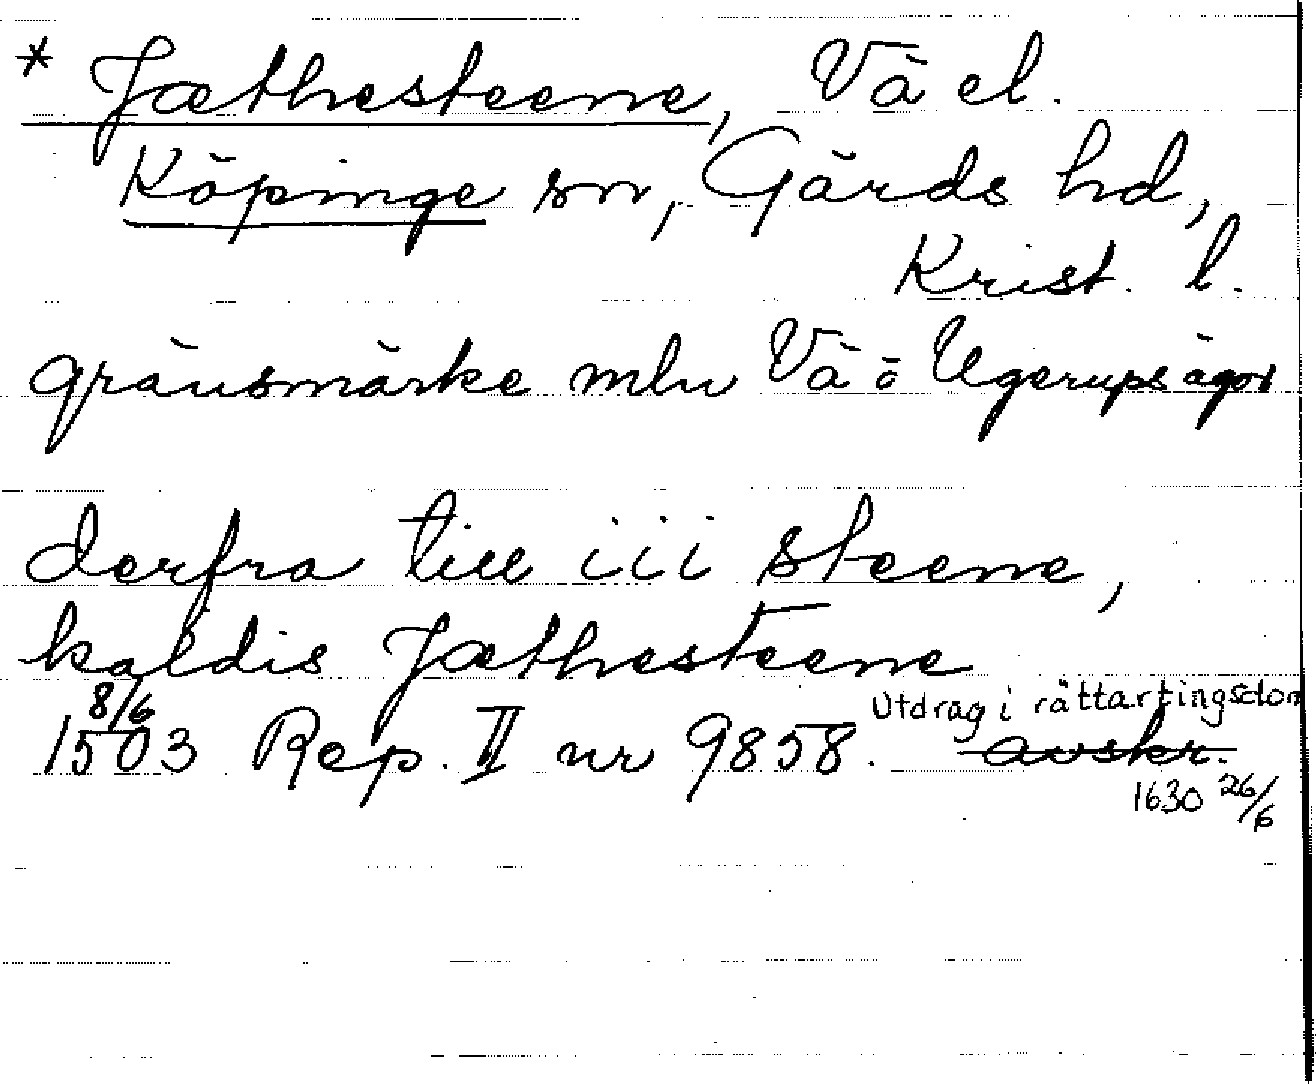 * Jæthesteene, Vä el.
Köpinge sn, Gärds hd,
Krist. l.
gränsmärke mln Vä o Ugerups ägor
derfra till iii steene,
kaldis Jæthesteene
8/6 Utdrag i rättartingsdom
1503 Rep. II nr 9858. avskr.
1630 26/6